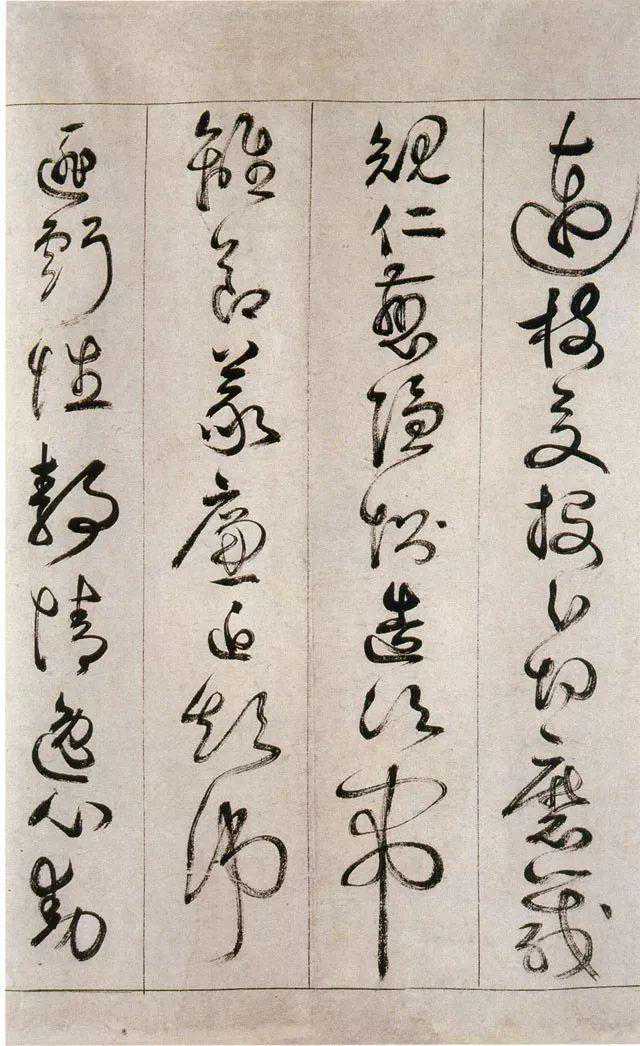 連枝交投分切磨箴
規仁慈隱惻造次弗
離節義廉退顛沛
匪虧性靜情逸心動